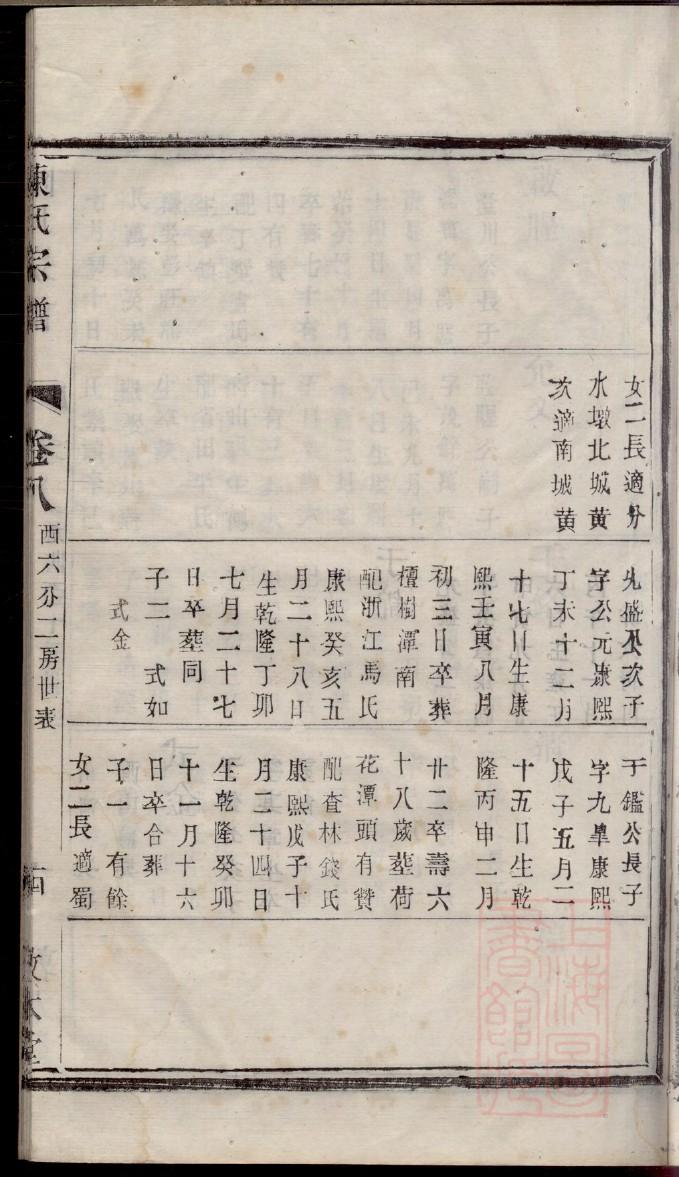 女二長適分
水墩北城黃
次適南城黃
九盛公次子
字公元康熙
丁未十二月
十七日生康
熙壬寅八月
初三日卒葬
檀樹潭南
配浙江馬氏
康熙癸亥五
月二十八日
生乾隆丁卯
七月二十七
日卒塟同
子二 式如
式金
于鑑公長子
字九臯康熙
戊子五月二
十五日生乾
隆丙申二月
廿二卒壽六
十八歲塟荷
花潭頭有贊
配查林錢氏
康熙戊子十
月二十四日
生乾隆癸卯
十一月十六
日卒合葬
子一 有餘
女二長適蜀
陳氏宗譜
卷八
酉六分二房世表
敦本堂
上海圖書館藏